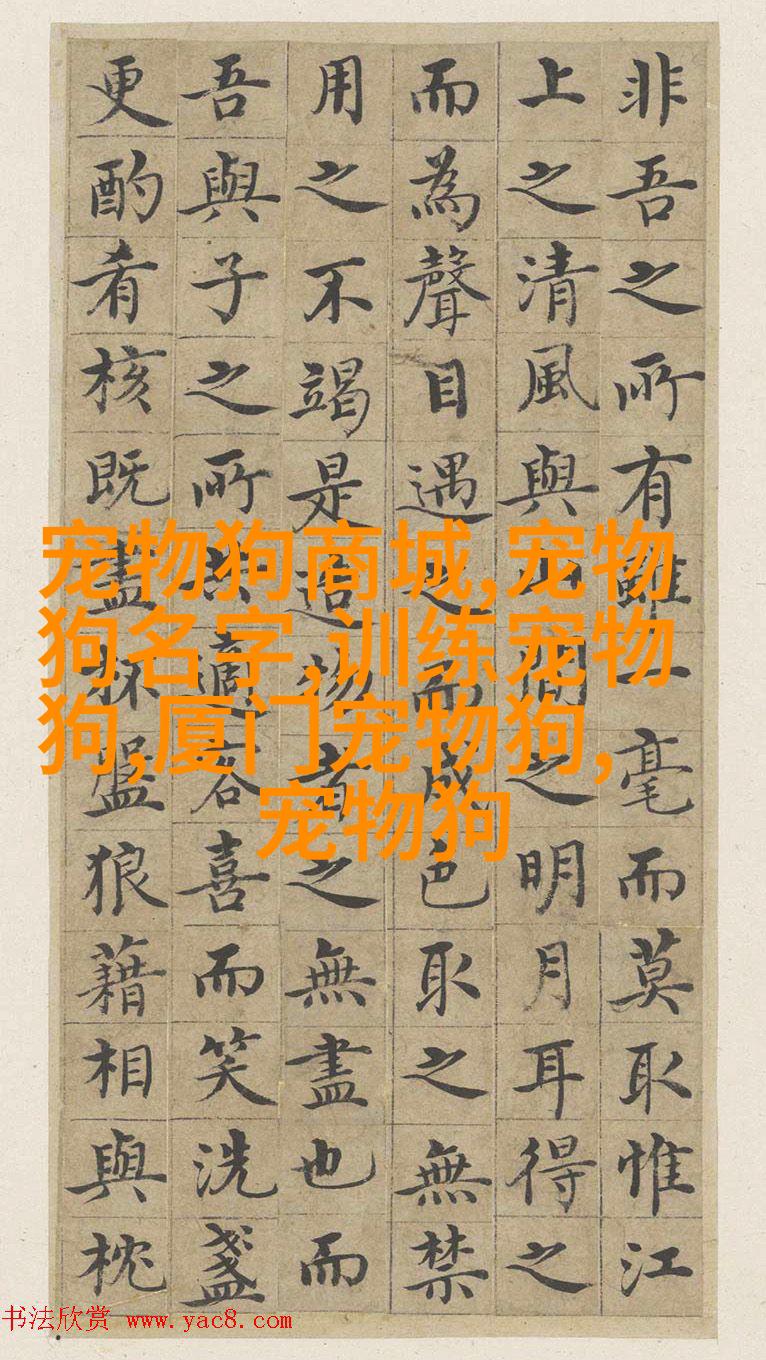 非吾之所有雖一毫而莫取惟江
上之清風與山間之明月耳得之
而為聲目遇之而成色取之無禁
用之不竭是造物者之無盡也而
吾與子之所共適客喜而笑洗盞
更酌肴核既盡杯盤狼藉相與枕
宠物狗商城,宠物
狗名字,训练宠物
狗,厦门宠物狗,
宠物狗
书法欣赏 www.yac8.com